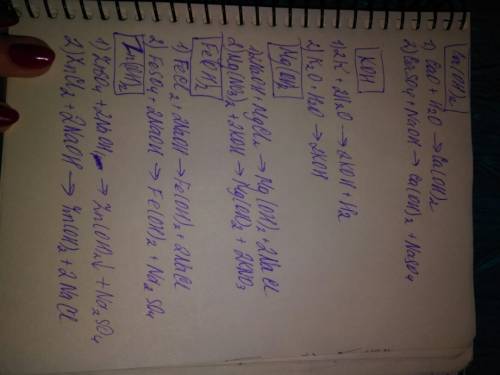 Ca(OH)₂
1) CaO + H₂O → Ca(OH)₂
2) CaSO₄ + NaOH → Ca(OH)₂ + NaSO₄
KOH
1) 2K + 2H₂O → 2KOH + H₂
2) K₂O + H₂O → 2KOH
Mg(OH)₂
1) 2NaOH + MgCl₂ → Mg(OH)₂ + 2NaCl
2) Mg(NO₃)₂ + 2KOH → Mg(OH)₂ + 2KNO₃
Fe(OH)₂
1) FeCl₂ + 2NaOH → Fe(OH)₂ + 2NaCl
2) FeSO₄ + 2NaOH → Fe(OH)₂ + Na₂SO₄
Zn(OH)₂
1) ZnSO₄ + 2NaOH → Zn(OH)₂↓ + Na₂SO₄
2) ZnCl₂ + 2NaOH → Zn(OH)₂ + 2NaCl